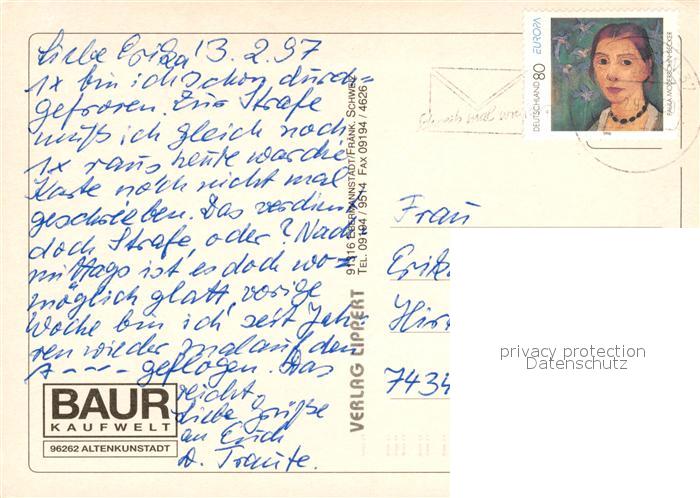 Liebe Erika! 3.2.97
1x bin ich schon durch=
gefroren. Zur Strafe
muß ich gleich noch
1x raus heute war die
Karte noch nicht mal
geschrieben. Das verdient
doch Strafe, oder? Nach=
mittags ist es doch wo=
möglich glatt, vorige
Woche bin ich seit Jah=
ren wieder mal auf den
A---- geflogen. Das
reicht
Liebe Grüße
an Erich
D. Traute.
BAUR
KAUFWELT
96262 ALTENKUNSTADT
VERLAG LIPPERT
91316 EBERMANNSTADT/FRÄNK. SCHWEIZ
TEL. 09194 / 9514 FAX 09194 / 4626
DEUTSCHLAND 80 EUROPA
PAULA MODERSOHN-BECKER
Schreib mal
Frau
Erika
7434
privacy protection
Datenschutz